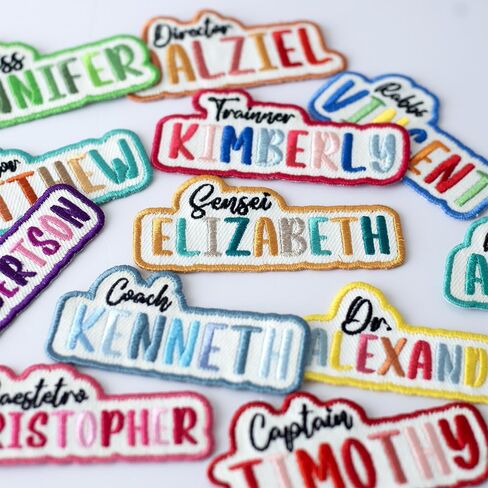 Director
ALZIEL
NNIFER
Trainner
KIMBERLY
Rabbi
VINCENT
TTHEW
Sensei
ELIZABETH
BERTSON
Coach
KENNETH
Dr.
ALEXAND
Maestetro
RISTOPHER
Captain
TIMOTHY